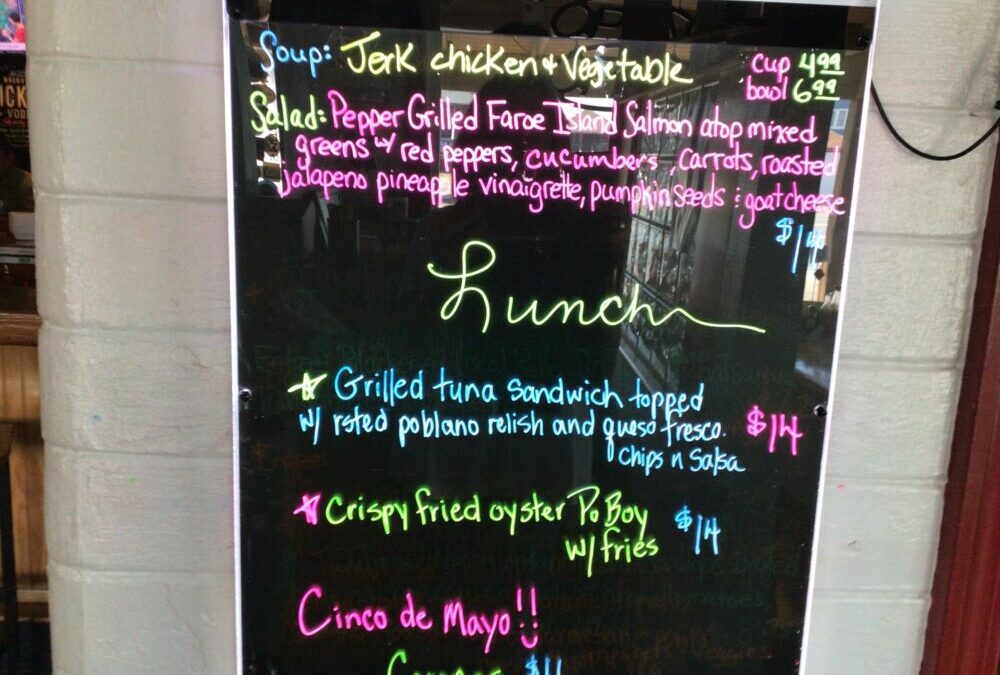 Soup: Jerk chicken + Vegetable cup 4.99
bowl 6.99
Salad: Pepper Grilled Faroe Island Salmon atop mixed
greens w/ red peppers, cucumbers, carrots, roasted
jalapeno pineapple vinaigrette, pumpkin seeds & goat cheese
Lunch
Grilled tuna sandwich topped
w/ rsted poblano relish and queso fresco. $14
chips n salsa
Crispy fried oyster Po Boy $14
w/ fries
Cinco de Mayo!!